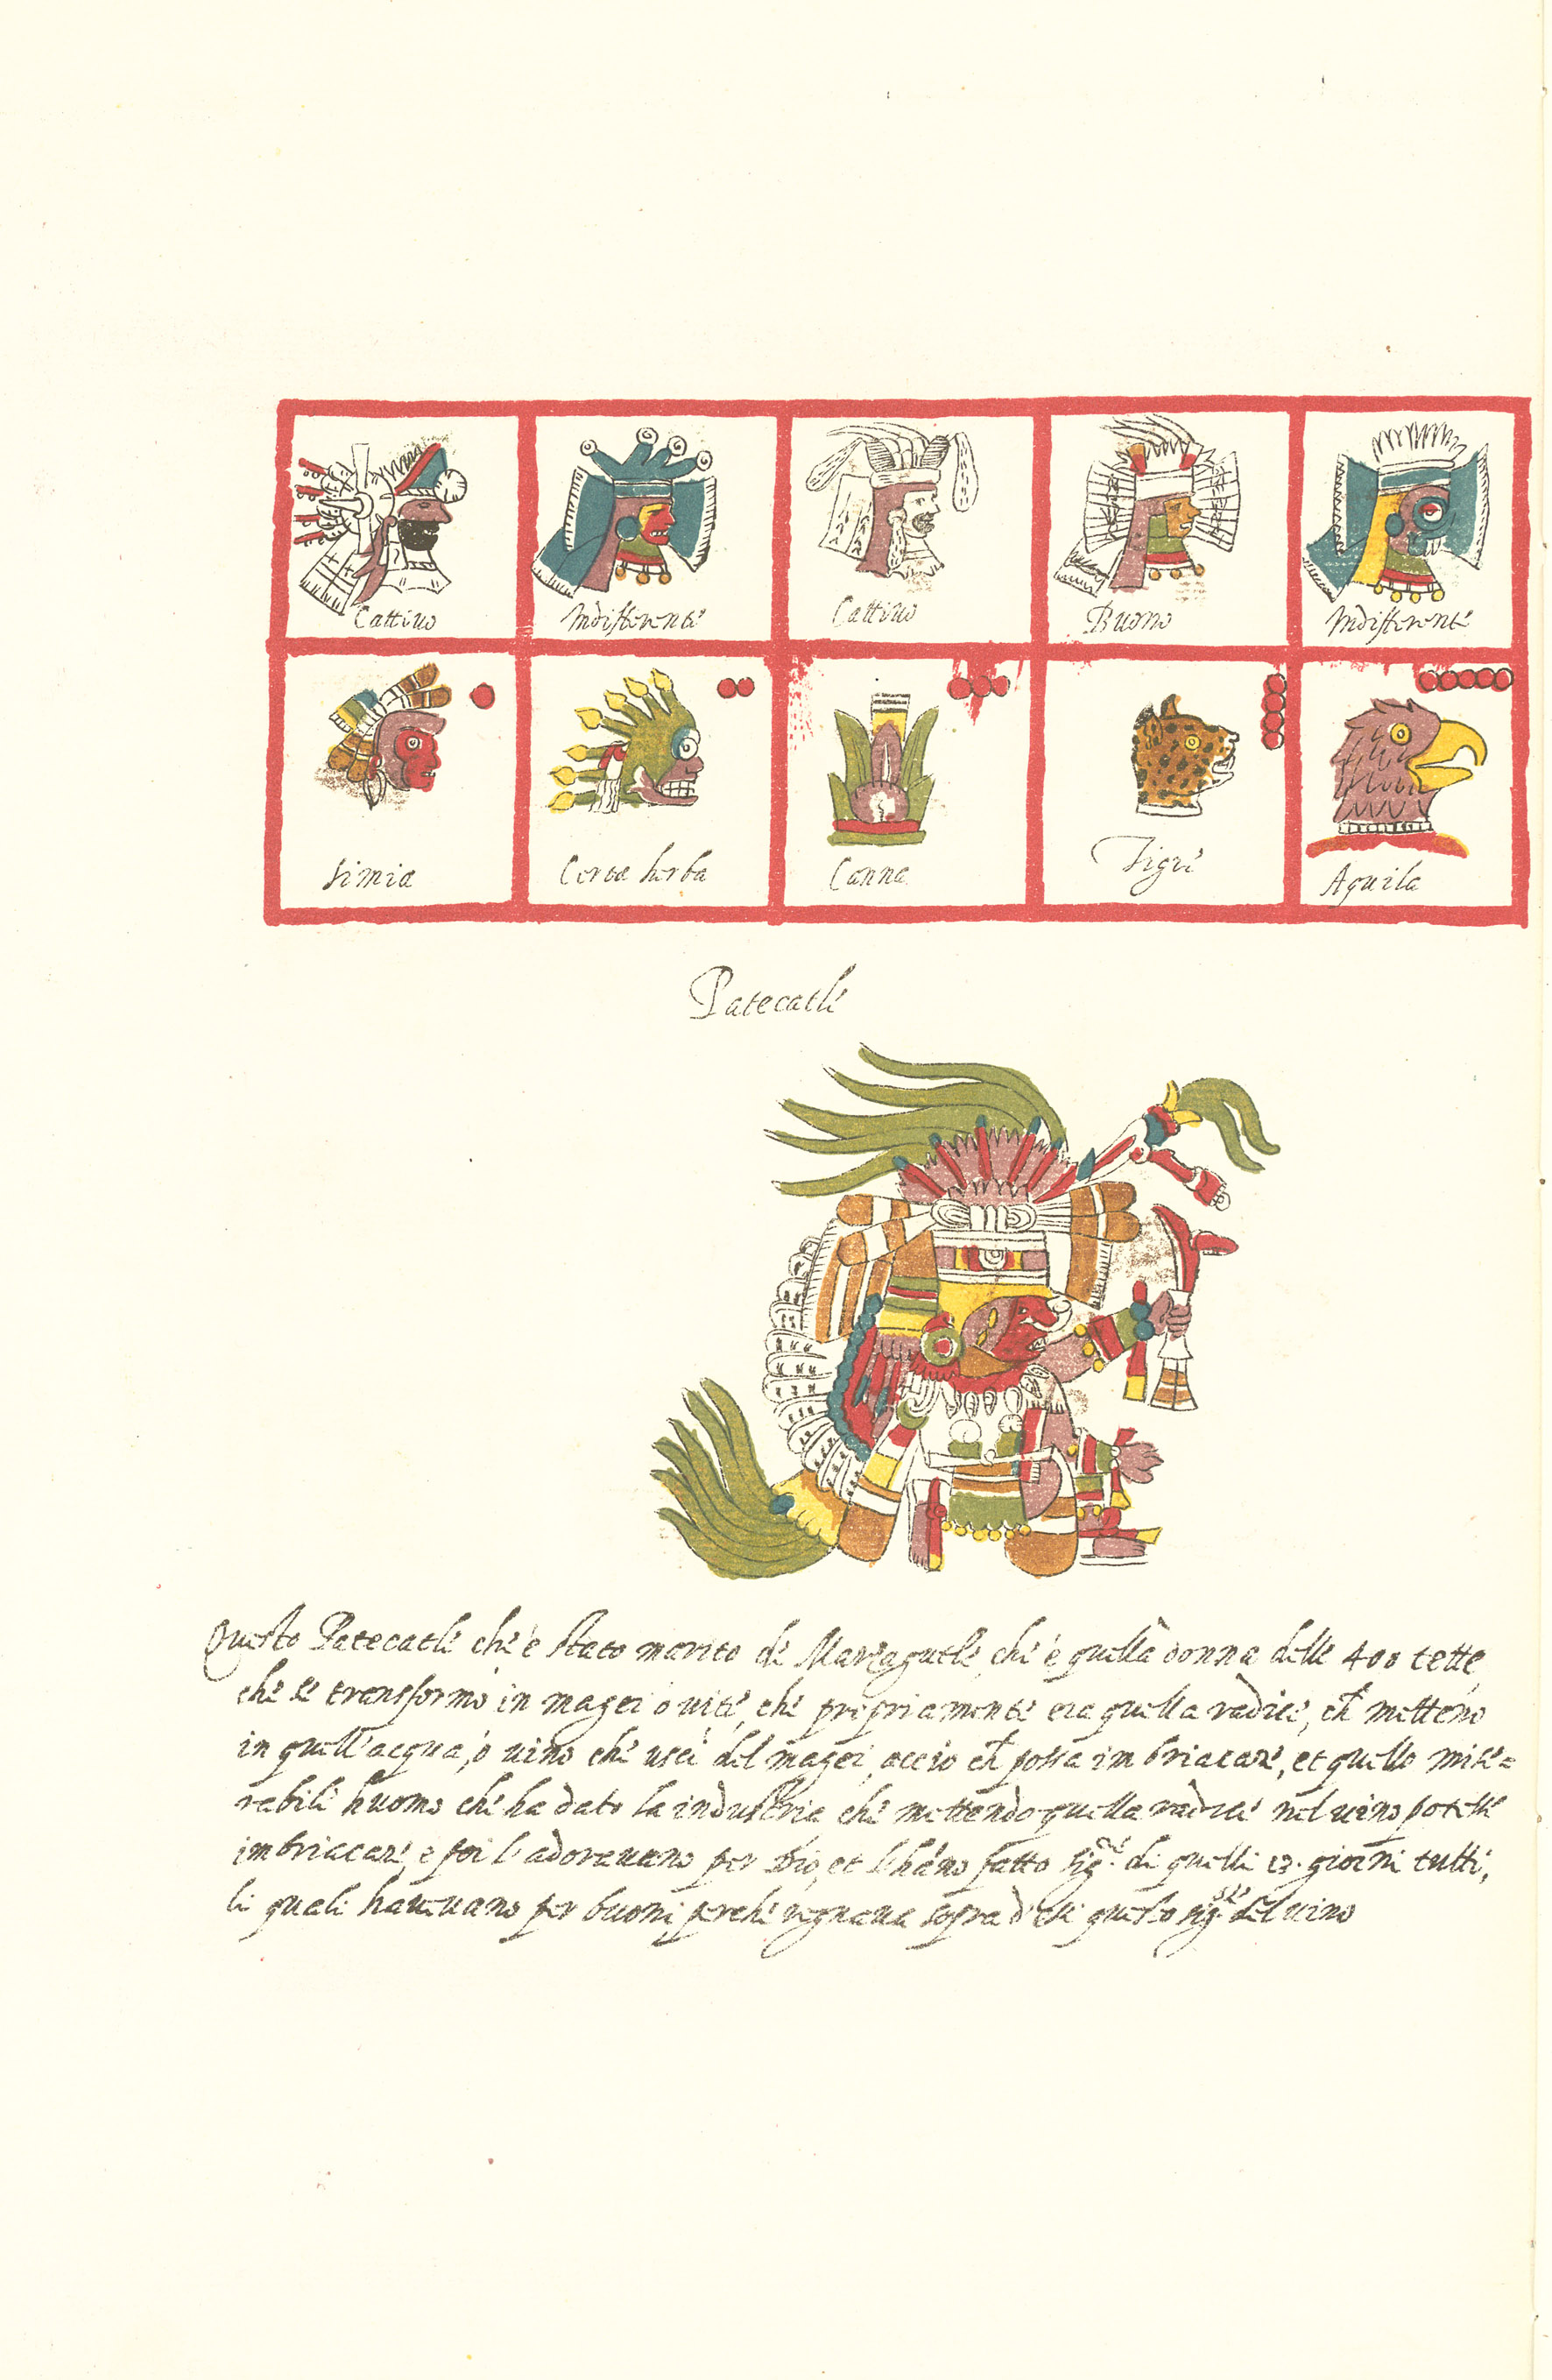 Cattiuo
Indifferente
Cattiuo
Buono
Indifferente
Simia
Certa herba
Canna
Tigre
Aquila
Patecatle
Questo Patecatle che è stato marito de che è quella donna delle 400 tette
che se transformò in magei o uite, che propriamente era quella radice, ch metteno
in quell'acqua, o uino che usci del magei, accio ch possa imbriacare, et quello mise=
rabile huomo che ha dato la industria che mettendo quella radice nel uino potesse
imbriacare, e poi l'adorauano per Dio, et l'hano fatto sigre. di quelli 13. giorni tutti,
li quali haueuano per buoni perche regnaua sopra d'essi questo sigre. del uino